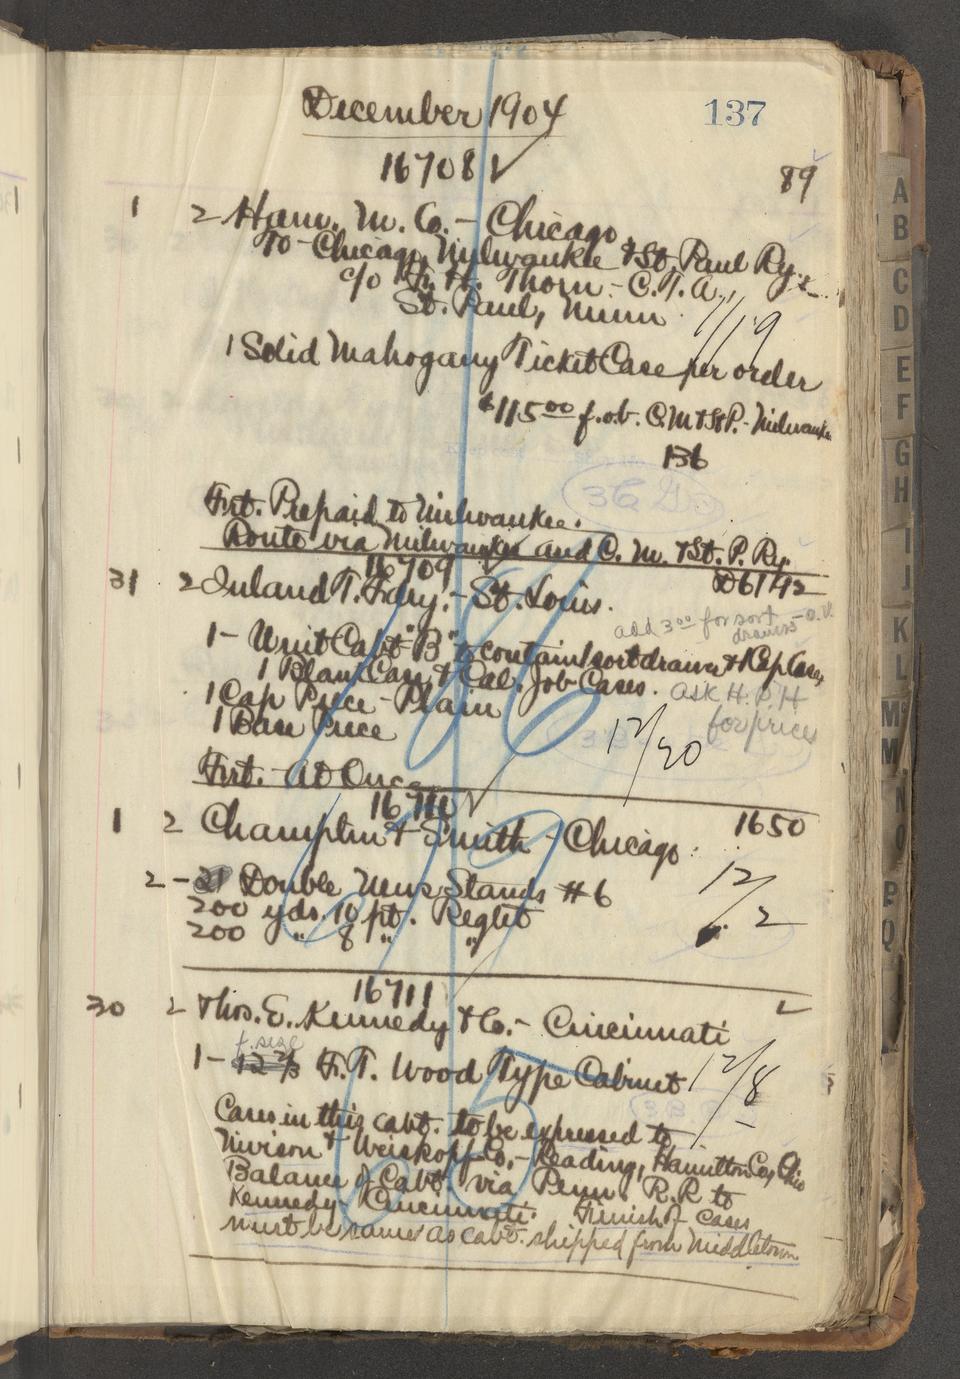 December 1904
137
16708 ✓
89
1 2 Ham. M. Co. - Chicago
To - Chicago, Milwaukee & St. Paul Ry.
c/o F. H. Thorn - C.T.A.
St. Paul, Minn
1/19
1 Solid Mahogany Ticket Case per order
$115 00 f.o.b. C.M & St P. - Milwaukee
136
36
Frt. Prepaid to Milwaukee.
Route via Milwaukee and C. M. & St. P. Ry.
16709 ✓
D6142
31 2 Inland T. Fdry. - St. Louis.
add 3 00 for sort drawers
1 - Unit Cabt "B" to contain 1 sort drawer & Kap Cases
1 Blank Case & Cal. Job Cases.
ask H. P. H for prices
1 Cap Piece - Plain
1 Base Piece
12/30
Frt. - At Once
16710 ✓
1650
1 2 Champlin & Smith - Chicago
2 - Double News Stands #6
12/2
200 yds. 10 pt. Reglet
200 " 8 " "
16711
30 2 Thos. E. Kennedy & Co. - Cincinnati
f. size
1 - 12 2/3 F. T. Wood Type Cabinet
12/8
Cases in this cabt. to be expressed to
Nivison & Weiskopf Co, - Reading, Hamilton Co, Ohio
Balance of Cabt. via Penn. R.R to
Kennedy - Cincinnati. Finish of cases
must be same as cabt. shipped from Middletown
A
B
C
D
E
F
G
H
I
J
K
L
Mc
M
N
O
P
Q